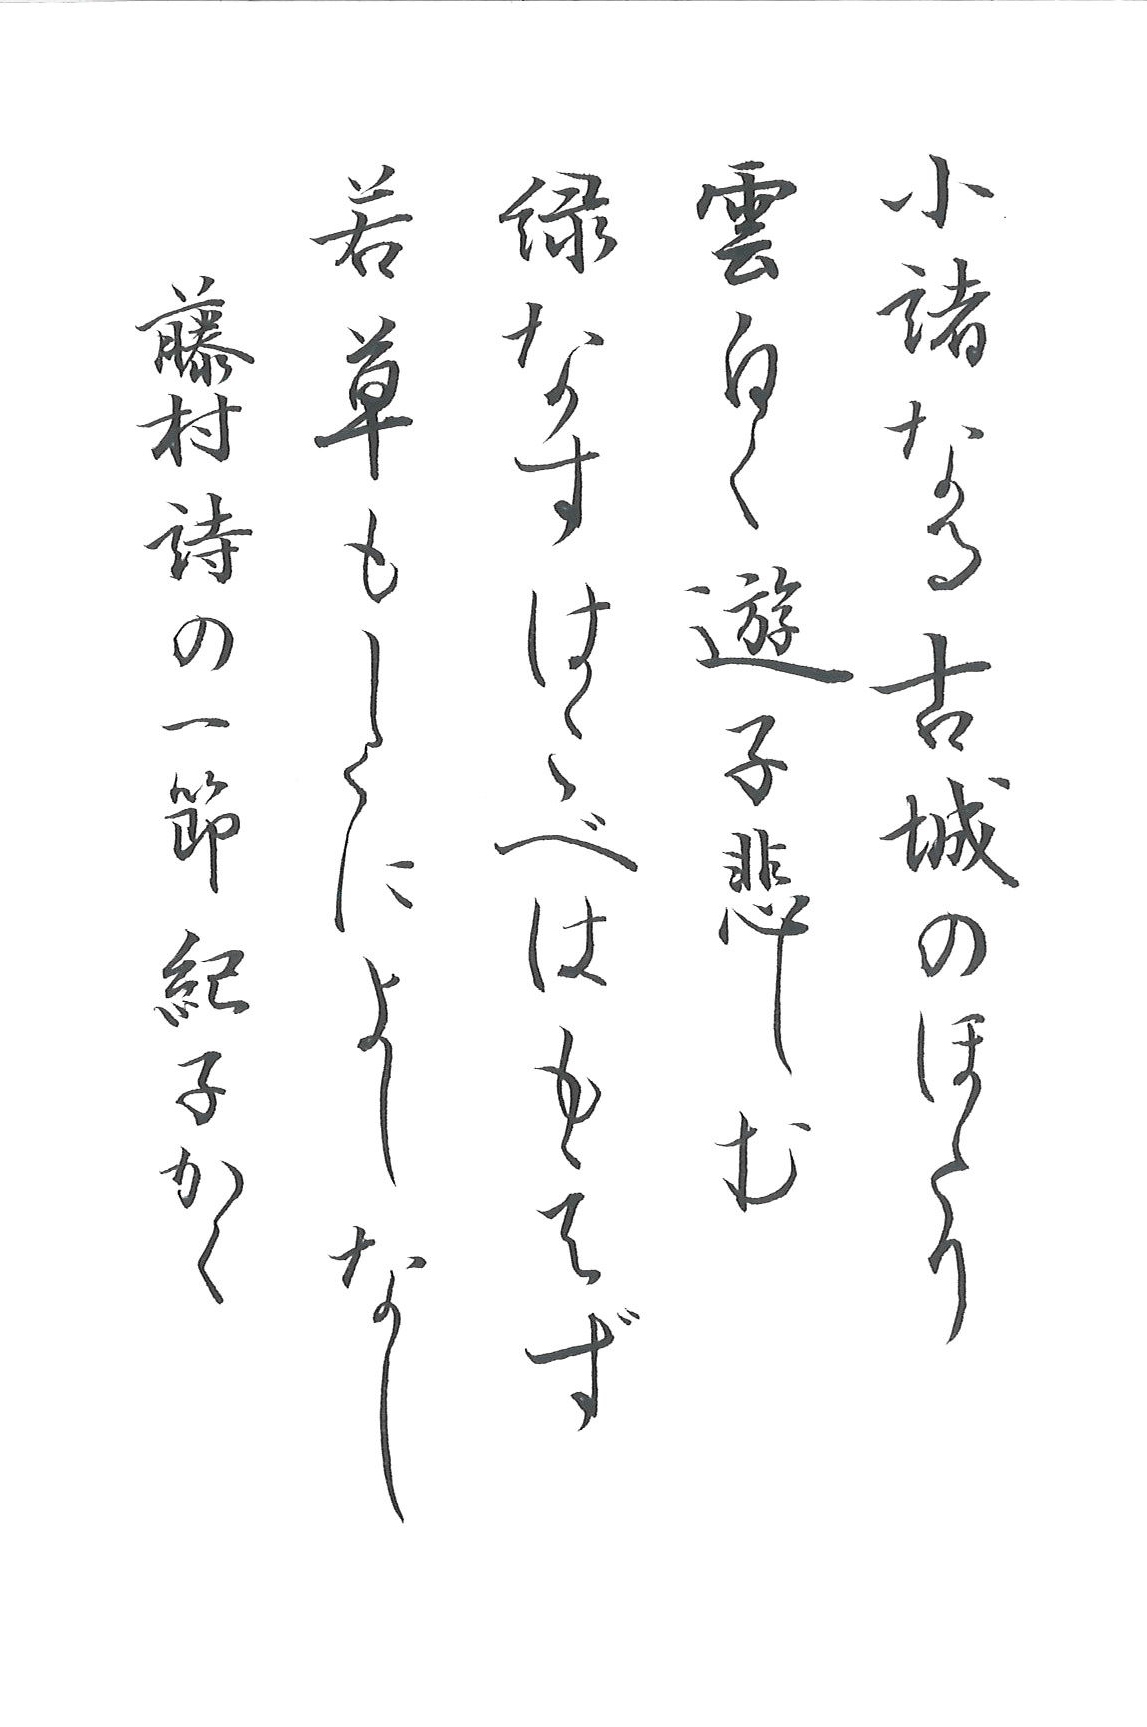 小諸なる古城のほとり
雲白く遊子悲しむ
緑なすはこべはもえず
若草もしくによしなし
藤村詩の一節 紀子かく